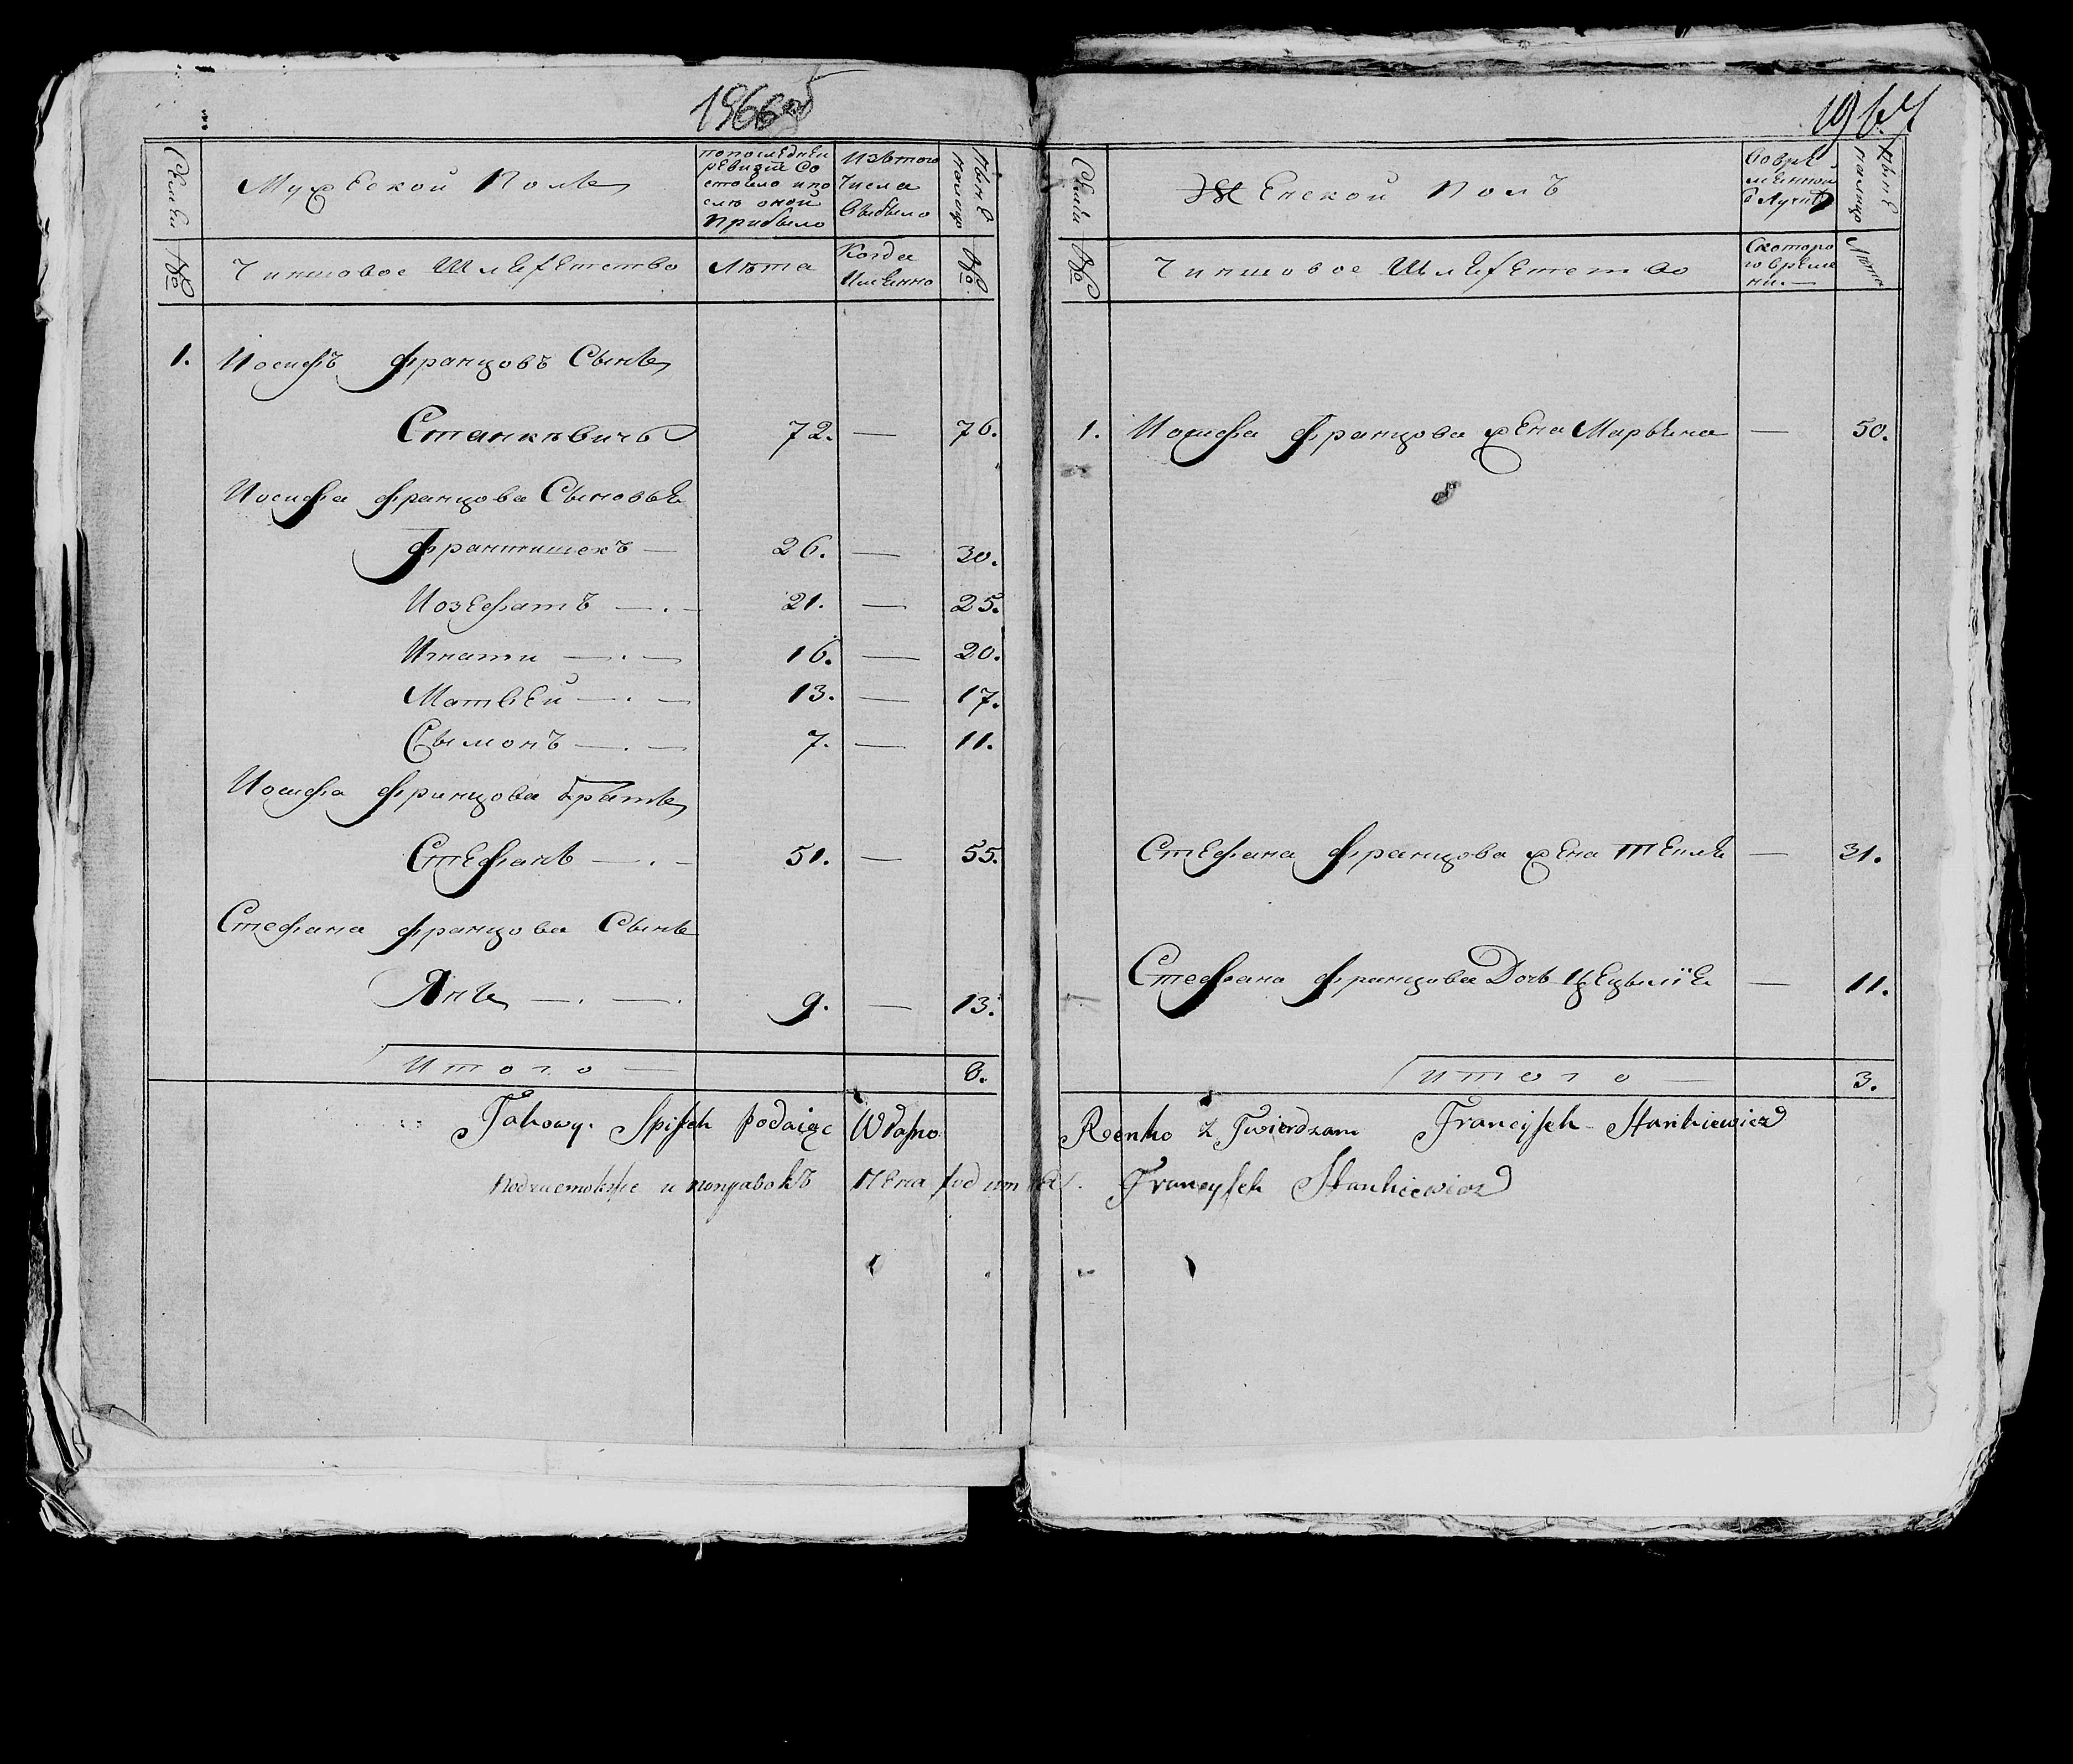 1966
Семьи
Мужеской Полъ
попоследней ревизiи Состояло и после оной прибыло
Изътого Числа Выбыло
Ныне налицо
№
Чиншовое Шляхетство
Лѣта
Когда Именно
№
1. Иосифъ Францовъ Сынъ
Станкѣвичъ 72. — 76.
Иосифа Францова Сыновье
Франтишекъ — 26. — 30.
Иозефатъ — 21. — 25.
Игнати — 16. — 20.
Матвей — 13. — 17.
Сымонъ — 7. — 11.
Иосифа Францова Братъ
Стефанъ — 51. — 55.
Стефана Францова Сынъ
Янъ — 9. — 13.
Итого — 8.
1967
Семьи
Женской Полъ
Вовременной Отлучке
Ныне налицо
№
Чиншовое Шляхетство
Скоторого времени
Лѣта
1. Иосифа Францова жена Марьяна — 50.
Стефана Францова жена Текля — 31.
Стефана Францова Дочь Цецылiя — 11.
Итого — 3.
Takowy Spisek podaiąc Własno Renko z Twierdzam Francyszek Stankiewicz
Подчистокже и поправокъ Francyszek Stankiewicz